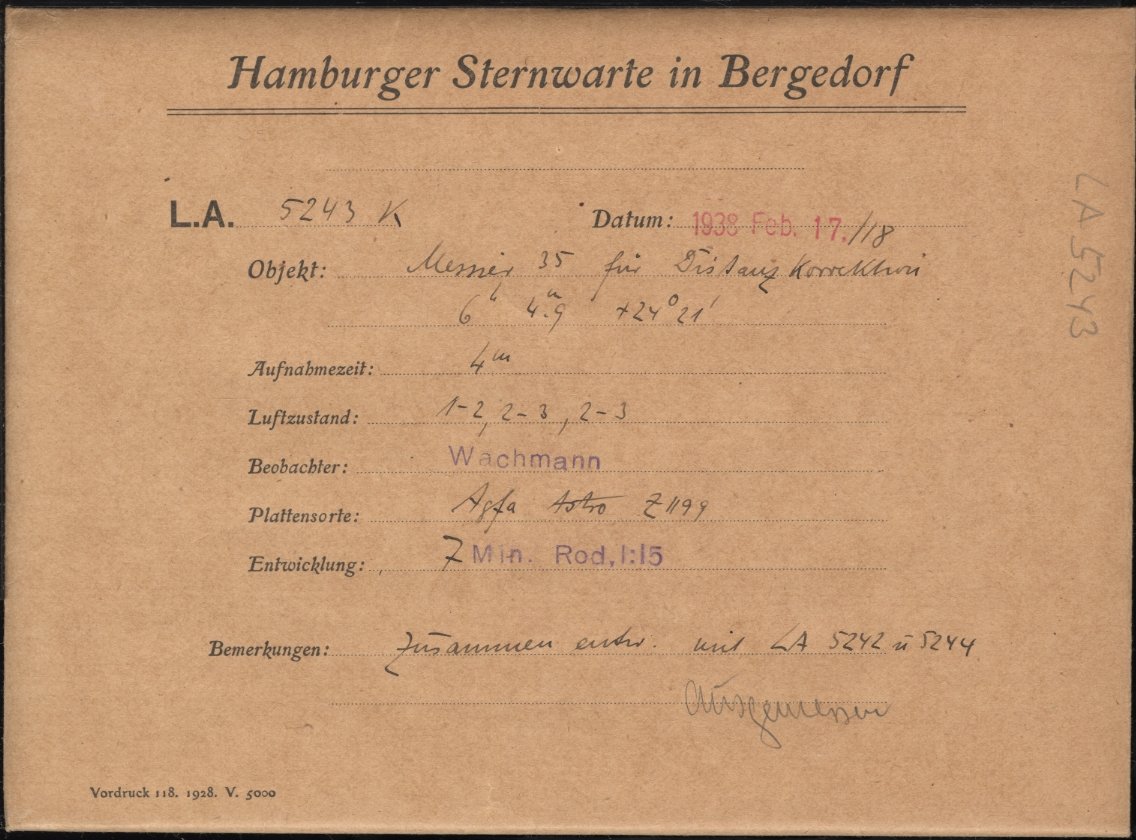 Hamburger Sternwarte in Bergedorf
L.A. 5243 K Datum: 1938 Feb. 17./18
Objekt: Messier 35 für Distanz Korrektion
6ʰ 4ᵐ.9 +24° 21'
Aufnahmezeit: 4ᵐ
Luftzustand: 1-2, 2-3, 2-3
Beobachter: Wachmann
Plattensorte: Agfa Astro Z 1199
Entwicklung: 7 Min. Rod, 1:15
Bemerkungen: Zusammen entw. mit LA 5242 u 5244
Ausgemessen
Vordruck 118. 1928. V. 5000
LA 5243